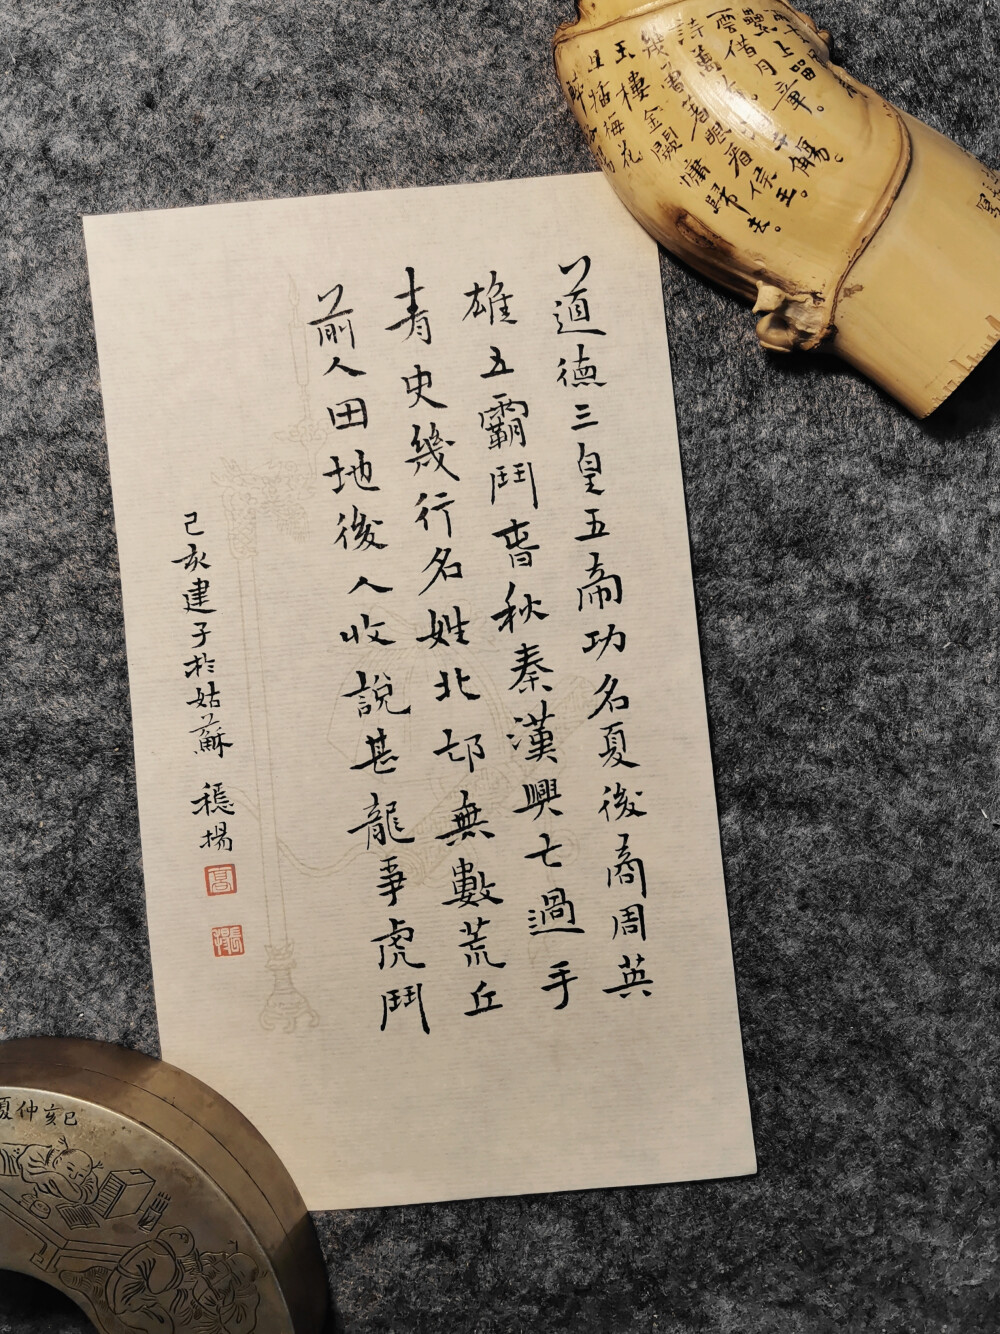 道德三皇五帝功名夏後商周英
雄五霸鬥春秋秦漢興亡過手
青史幾行名姓北邙無數荒丘
前人田地後人收說甚龍爭虎鬥
己亥建子於姑蘇 穩揚
上留
雲借月章。
詩萬首酒千觴。
幾曾著眼看侯王。
玉樓金闕慵歸去。
且插梅花
醉洛陽
己亥仲夏